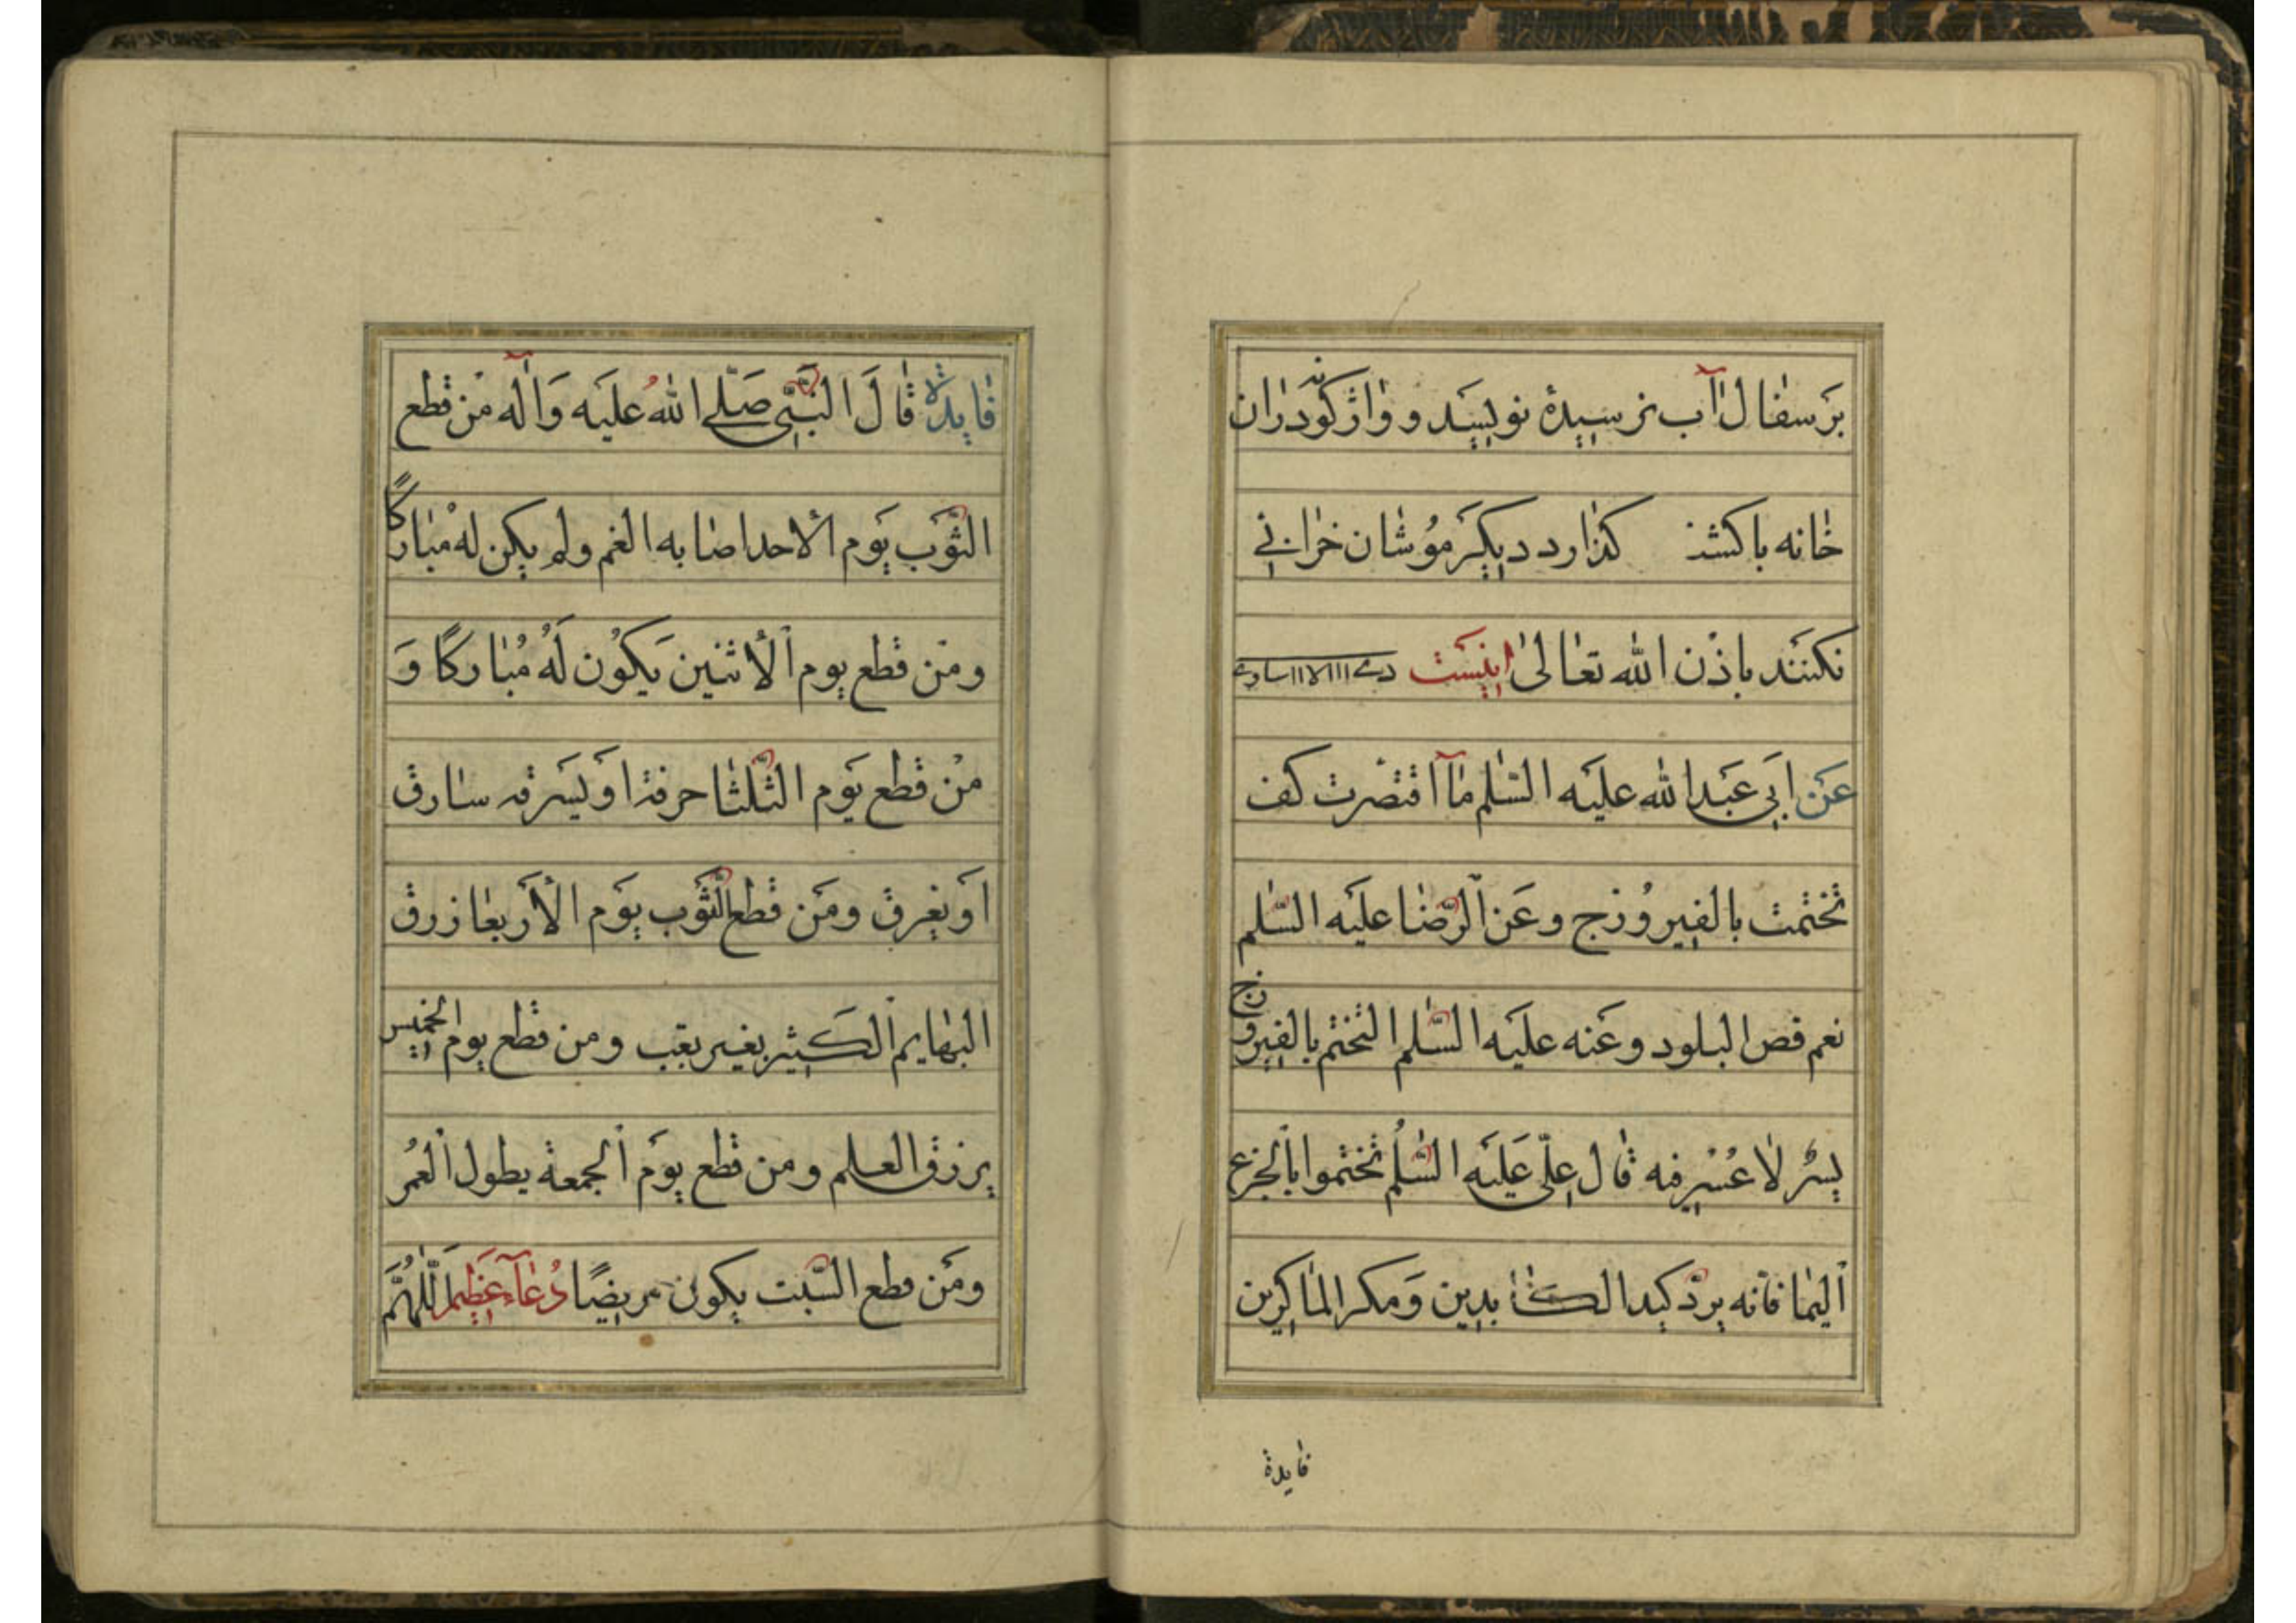 بَر سفال آب نرسیدهٔ نویسَد و واژکونه دَران
خانه باکشد کذارد دیکَر مُوشان خرابی
نکنَنَد باذن الله تعالیٰ اینست
عَن ابی عَبدالله علیَه السّلم ما افتقرت کف
تختمت بالفیروُزج وعَن الرّضا علیَه السّلم
نعم فص البلور وعَنه علیَه السّلم التختم بالفیروزج
یسُرٌ لا عُسْر فیه قال علّی عَلیَه السّلُم تختموا بالجزع
الیمانی فانه یردّ کید الکایدین وَمکر الماکرین
فایدة
فایدة قالَ النّبَّی صَلّے اللهُ علیَه وَآله مَن قطع
الثّوَب یَوم الاحد اصابه الغم ولم یکن لهُ مُبارکًا
ومَن قطع یوم الأثنین یَکُون لَهُ مُبارکًا وَ
مَن قطع یَوم الثّلثا حرقة او یَسَرقه سارق
اَو یغرق ومَن قطع الثّوَب یوَم الأربعا زرق
البهایم الکَثیر بغیر تعب ومن قطع یوم الخمیس
یرزق العلم ومن قطع یوَم الجمعة یطول العُمر
ومَن قطع السّبت یکون مریضًا دُعآء عَظِیم اَللّٰهُمَّ